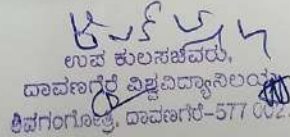 ಉಪ ಕುಲಸಚಿವರು,
ದಾವಣಗೆರೆ ವಿಶ್ವವಿದ್ಯಾನಿಲಯ
ಶಿವಗಂಗೋತ್ರಿ, ದಾವಣಗೆರೆ-577 002.